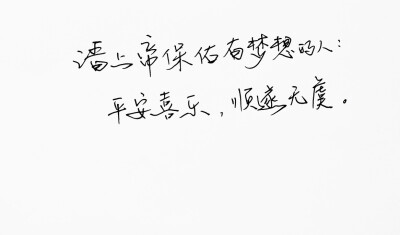 潘上帝保佑有梦想的人:
平安喜乐,顺遂无虞。